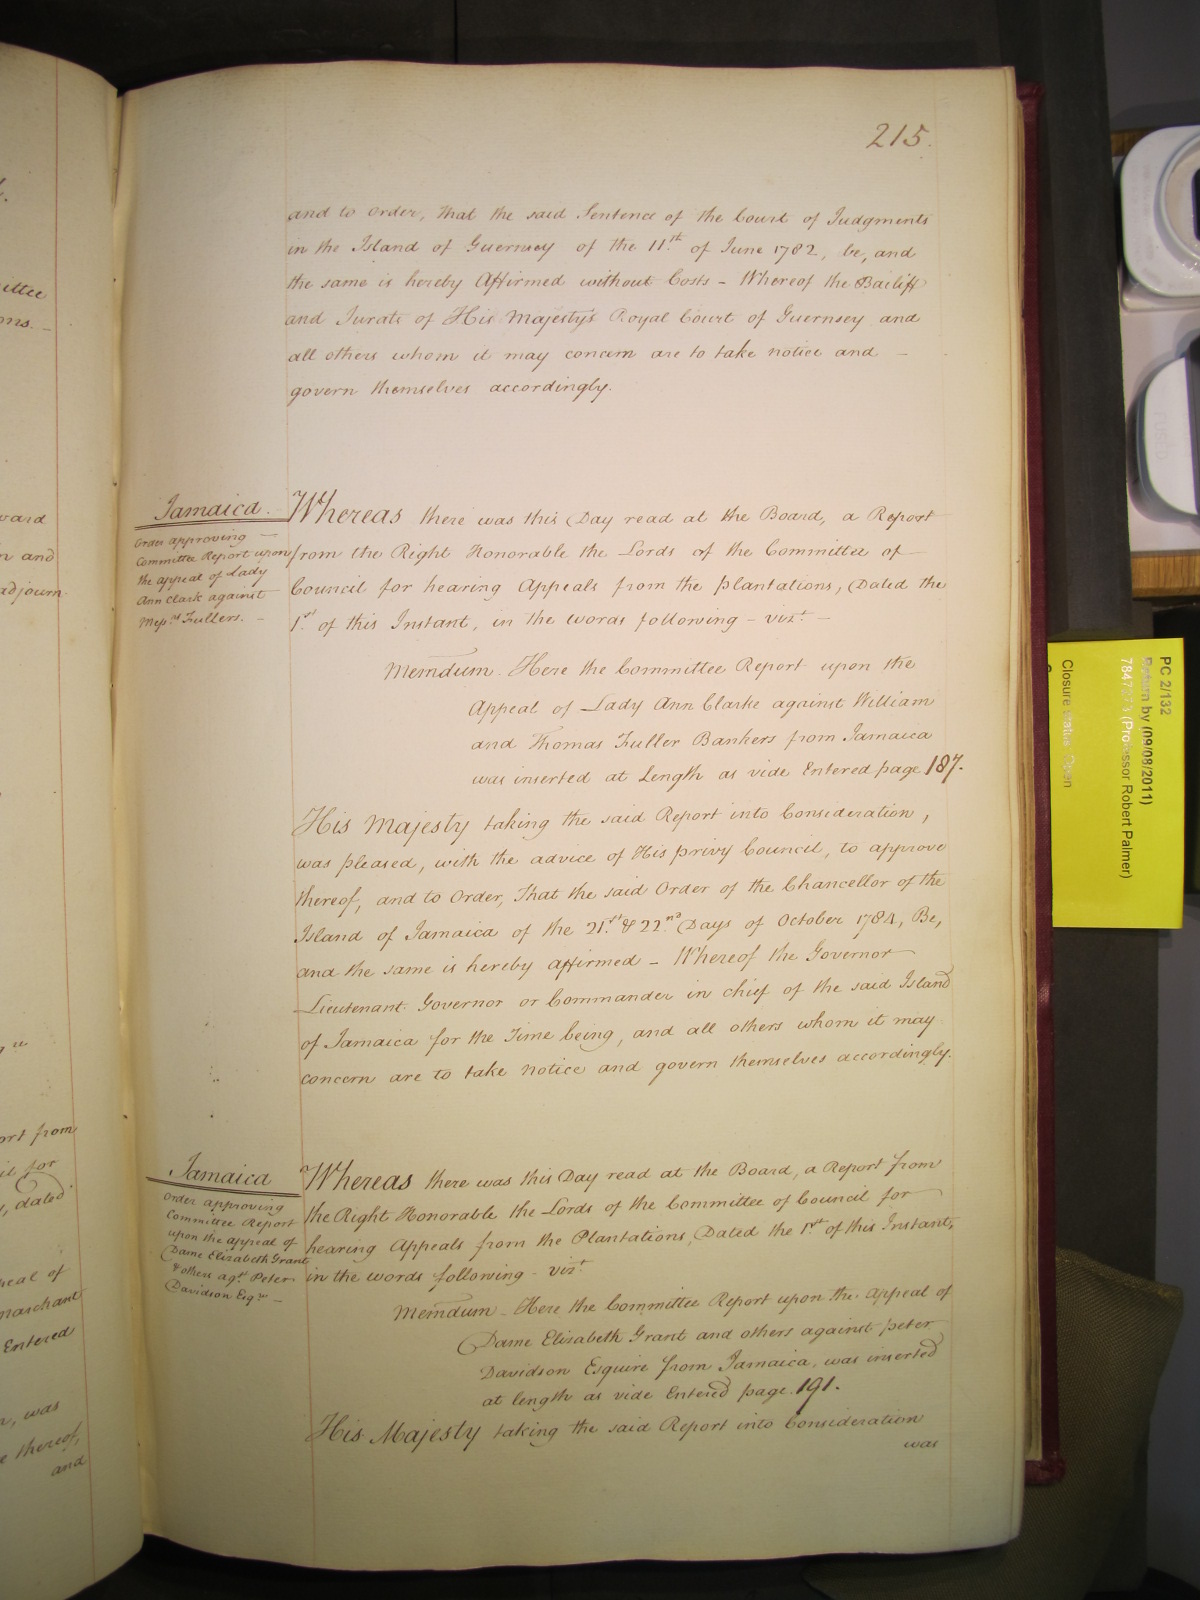 215.
and to order, that the said Sentence of the Court of Judgments
in the Island of Guernsey of the 11.th of June 1782, be, and
the same is hereby Affirmed without Costs – Whereof the Bailiff
and Jurats of His Majesty's Royal Court of Guernsey and
all others whom it may concern are to take notice and –
govern themselves accordingly.
Jamaica
Order approving –
Committee Report upon
the appeal of Lady
Ann Clark against
Mess.rs Fullers. –
Whereas there was this Day read at the Board, a Report
from the Right Honorable the Lords of the Committee of
Council for hearing Appeals from the Plantations, Dated the
1.st of this Instant, in the words following – vizt. –
Memdum. Here the Committee Report upon the
Appeal of Lady Ann Clarke against William
and Thomas Fuller Bankers from Jamaica
was inserted at Length as vide Entered page 187.
His Majesty taking the said Report into Consideration,
was pleased, with the advice of His privy Council, to approve
thereof, and to Order, That the said Order of the Chancellor of the
Island of Jamaica of the 21.st & 22.nd Days of October 1784, Be,
and the same is hereby affirmed – Whereof the Governor
Lieutenant Governor or Commander in chief of the said Island
of Jamaica for the Time being, and all others whom it may
concern are to take notice and govern themselves accordingly.
Jamaica
Order approving
Committee Report
upon the appeal of
Dame Elizabeth Grant
& others agt. Peter
Davidson Esqr. –
Whereas there was this Day read at the Board, a Report from
the Right Honorable the Lords of the Committee of Council for
hearing Appeals from the Plantations, Dated the 1.st of this Instant,
in the words following – vizt.
Memdum – Here the Committee Report upon the Appeal of
Dame Elizabeth Grant and others against Peter
Davidson Esquire from Jamaica, was inserted
at length as vide Entered page. 191.
His Majesty taking the said Report into Consideration
was
PC 2/132
Return by (09/08/2011)
(Professor Robert Palmer)
Closure status: Open